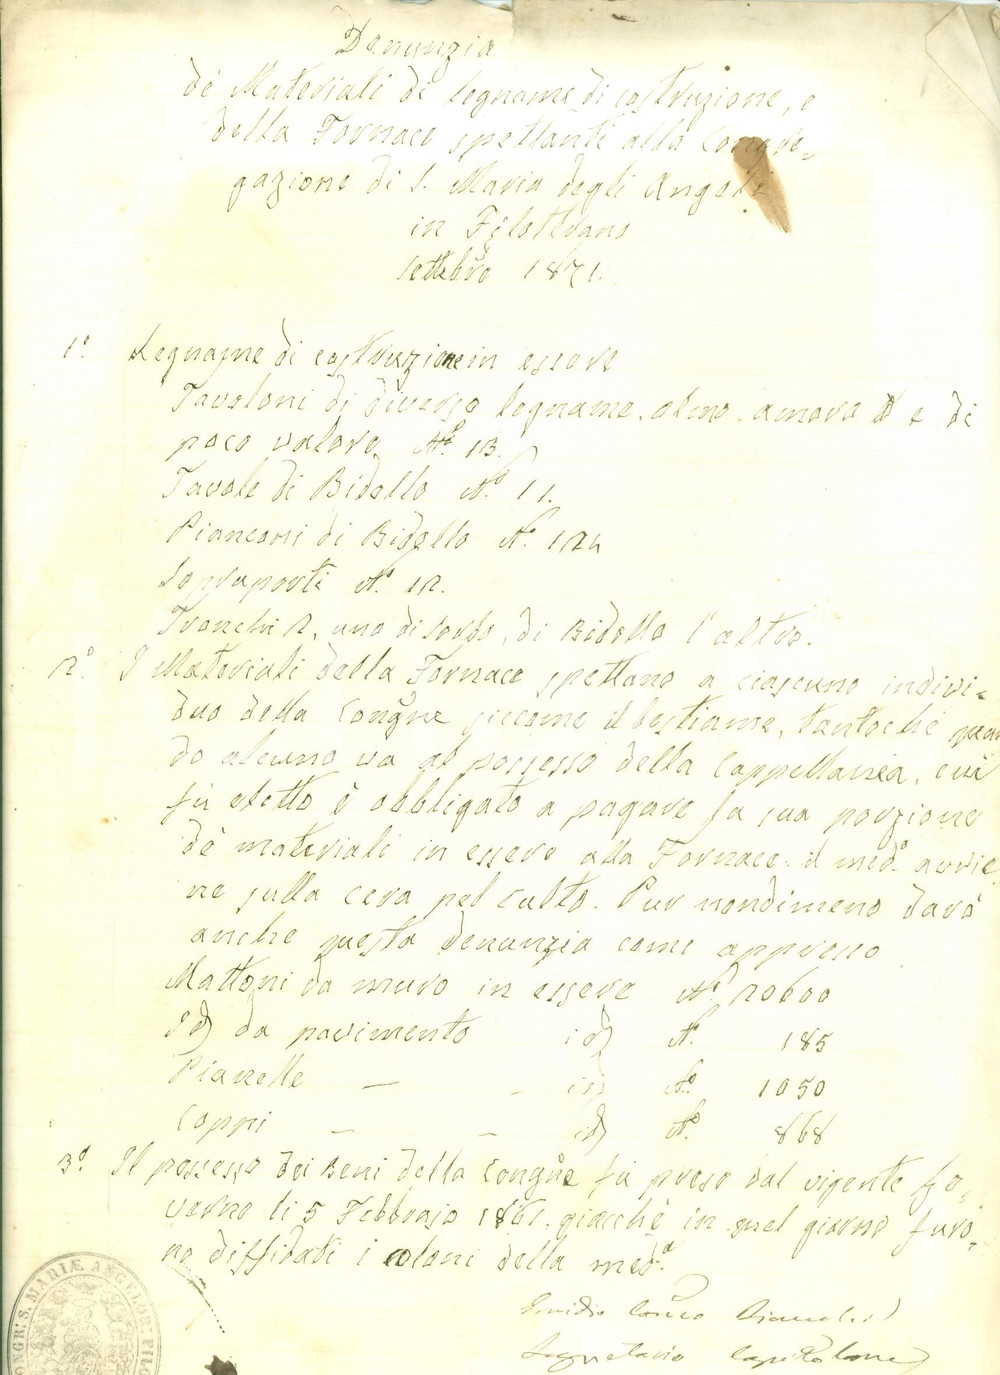 Denunzia
de' Materiali di legname di costruzione, e
della Fornace spettanti alla Congre-
gazione di S. Maria degli Angeli
in Filottrano
Settbre 1871.
1° Legname di costruzione in essere
Tavoloni di diverso legname, olmo, e di
poco valore N° 13.
Tavole di Bidollo N° 11.
Pianconi di Bidollo N° 124
Sopraporti N° 12.
Tronchi 2, uno di sorbo, di Bidollo l'altro.
2° I Materiali della Fornace spettano a ciascuno indivi-
duo della Congne siccome il bestiame, tantochè quan
do alcuno va al possesso della Cappellania, cui
fù eletto è obbligato a pagare la sua porzione
de' materiali in essere alla Fornace: il med° avvie
ne sulla cera pel culto. Pur nondimeno darò
anche questa denunzia come appresso
Mattoni da muro in essere N° 20600
Id da pavimento id N° 185
Pianelle — - id N° 1050
Coppi — - id N° 868
3° Il possesso dei Beni della Congne fù preso dal vigente Go-
verno li 5 Febbrajo 1861, giacchè in quel giorno furo-
no diffidati i coloni della meda
Emidio Can.co
Segretario Capitolare
CONGR: S. MARIÆ ANGELOR: FILO